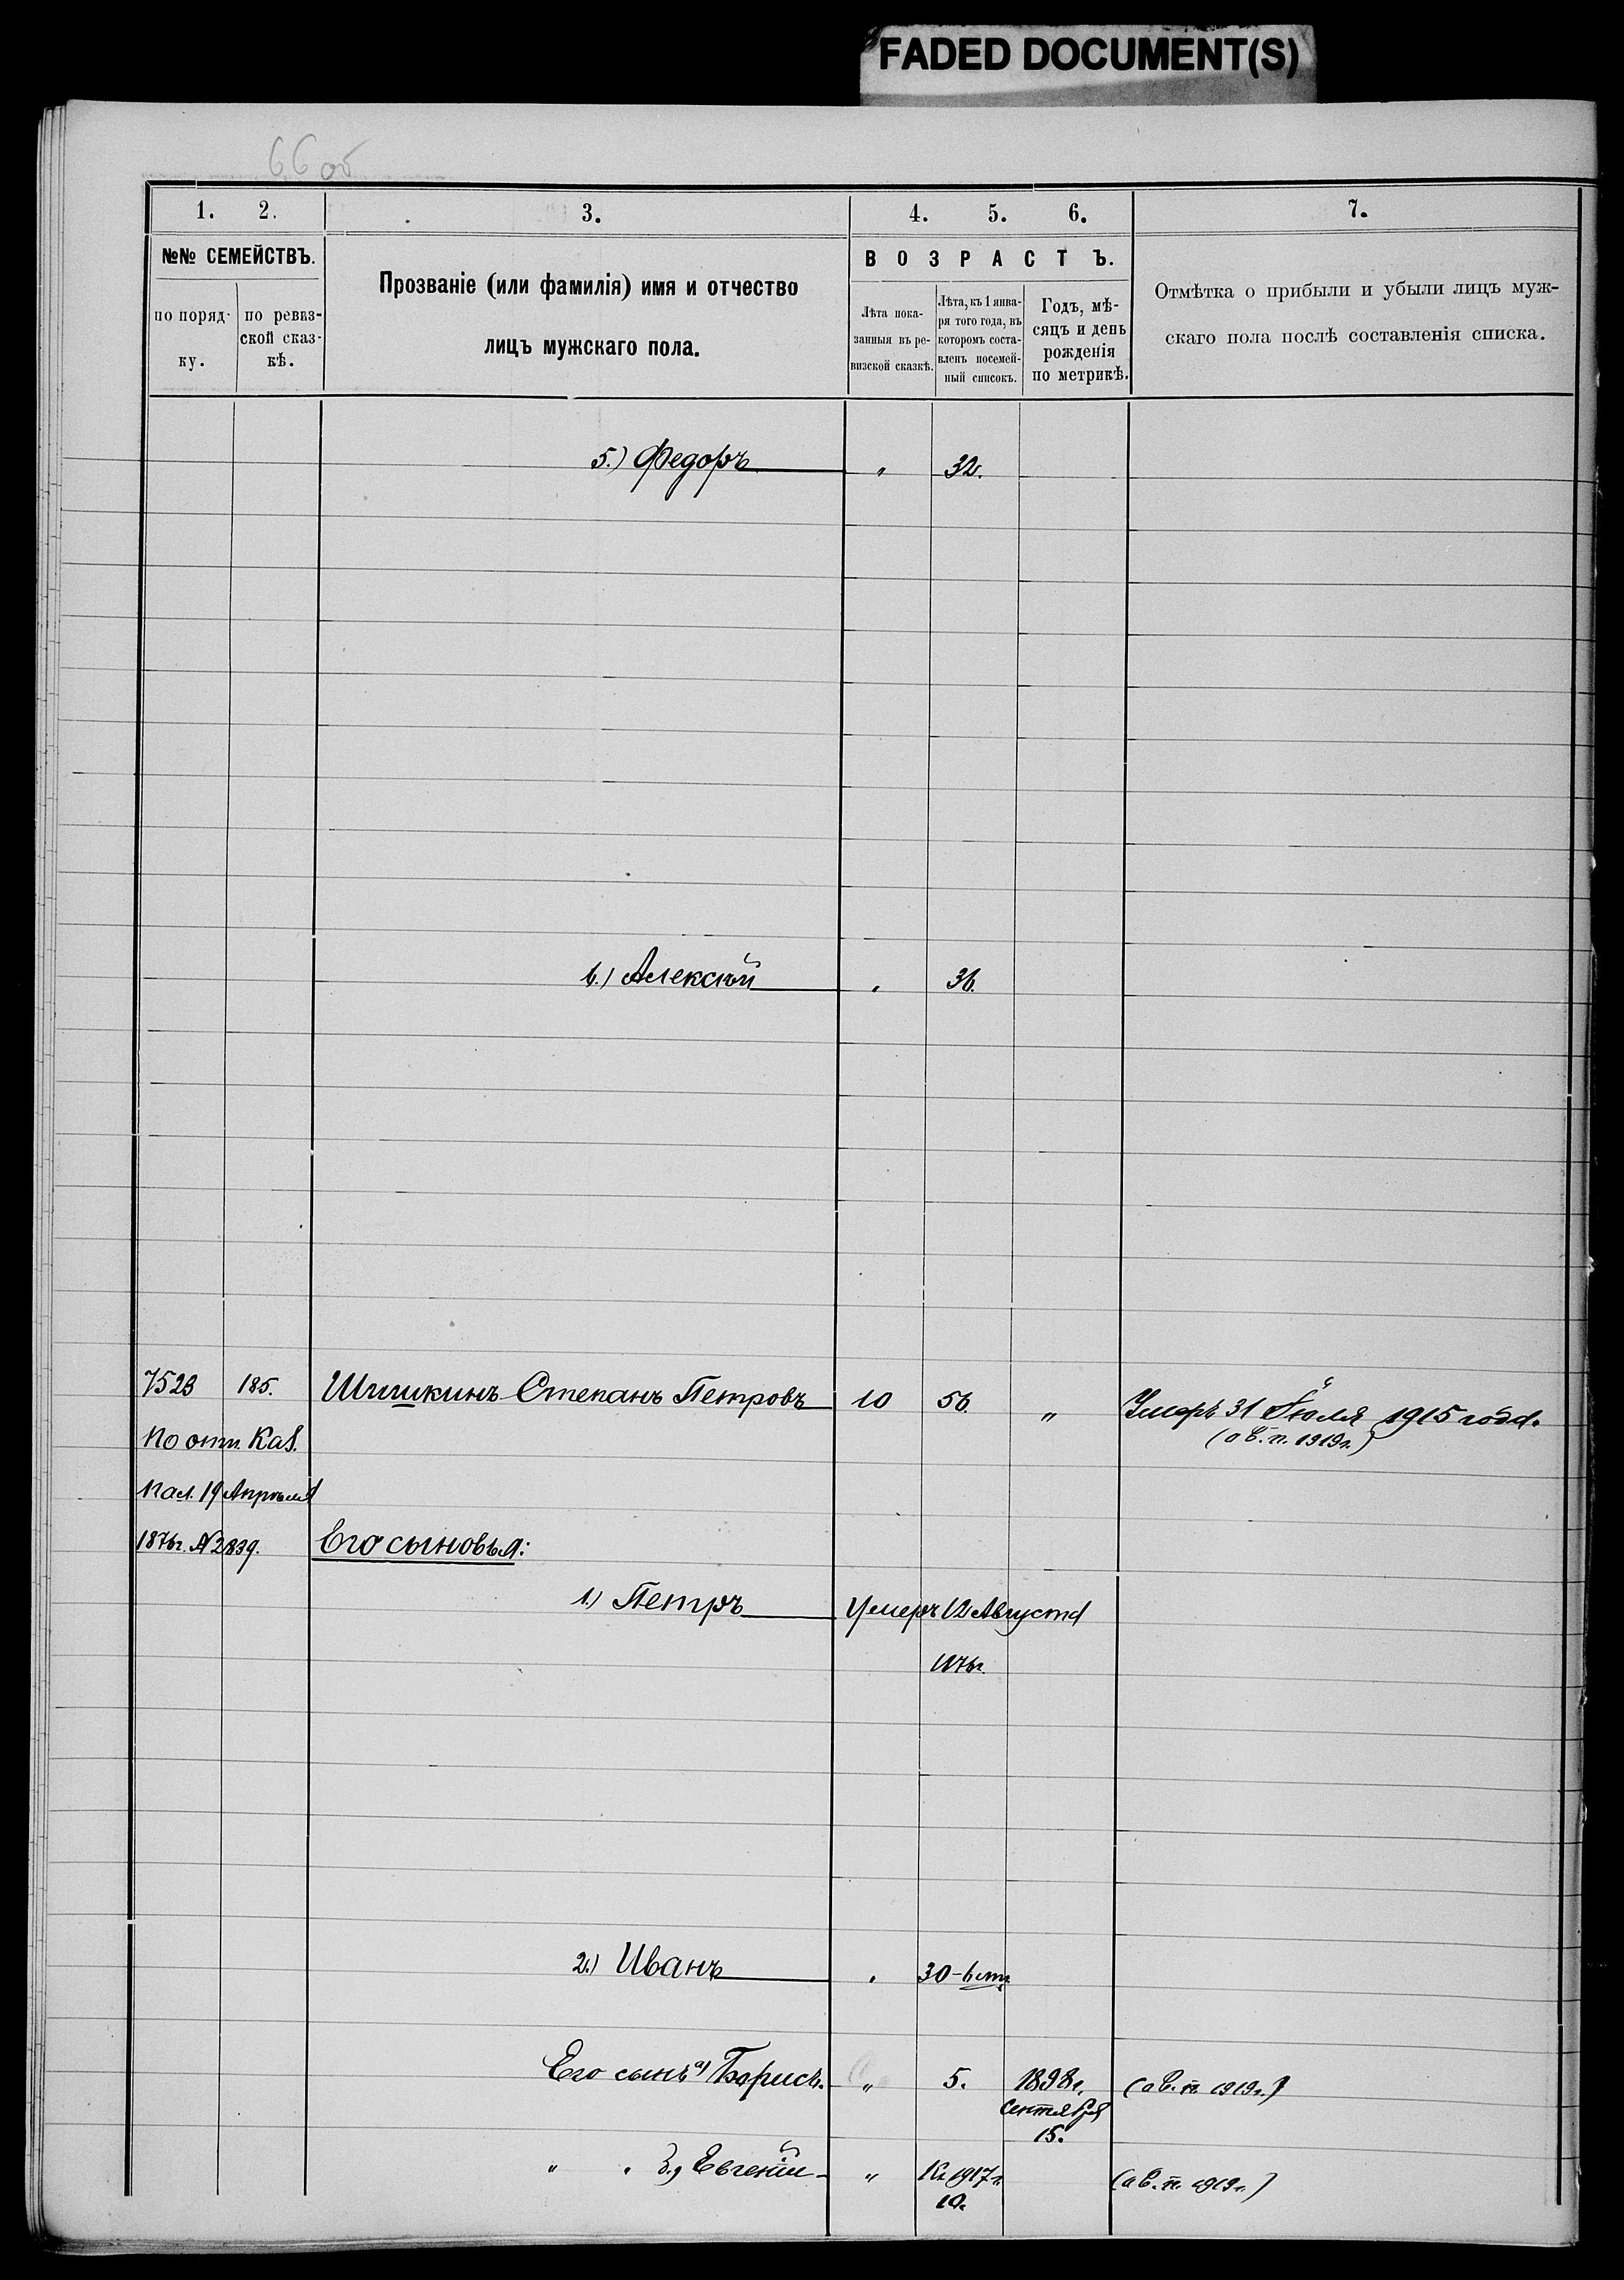 FADED DOCUMENT(S)
66 об
1. 2. 3. 4. 5. 6. 7.
№№ СЕМЕЙСТВЪ.
по поряд-
ку.
по ревиз-
ской сказ-
кѣ.
Прозваніе (или фамилія) имя и отчество
лицъ мужскаго пола.
ВОЗРАСТЪ.
Лѣта пока-
занныя въ ре-
визской сказкѣ.
Лѣта, къ 1 янва-
ря того года, въ
которомъ соста-
вленъ посемей-
ный списокъ.
Годъ, мѣ-
сяцъ и день
рожденія
по метрикѣ.
Отмѣтка о прибыли и убыли лицъ муж-
скаго пола послѣ составленія списка.
5.) Федоръ " 32.
6.) Алексѣй " 36.
7523 185. Шишкинъ Степанъ Петровъ 10 56 " Умеръ 31 Іюля 1915 года.
По отп. Каз. (а в. п. 1919г.)
Пал. 19 Апрѣля
1876г. №2839. Его сыновья:
1) Петръ Умеръ 12 Августа
1876г.
2.) Иванъ " 30-
Его сынъ а) Борисъ. " 5. 1898г. (а в. п. 1919г.)
Сентября
15.
" " б) Евгеній " Къ 1917г. (а в. п. 1919г.)
10.